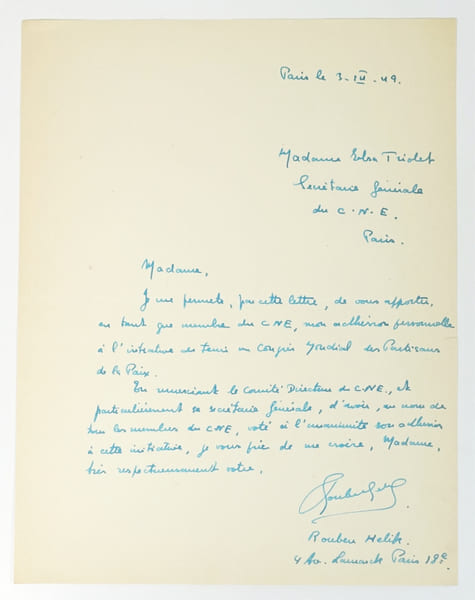 Paris le 3-III-49.
Madame Elsa Triolet
Secrétaire Générale
du C.N.E.
Paris.
Madame,
Je me permets, par cette lettre, de vous apporter,
en tant que membre du CNE, mon adhésion personnelle
à l'initiative de tenir un Congrès Mondial des Partisans
de la Paix.
En remerciant le Comité Directeur du CNE, et
particulièrement sa secrétaire générale, d'avoir, au nom de
tous les membres du CNE, voté à l'unanimité son adhésion
à cette initiative, je vous prie de me croire, Madame,
très respectueusement votre.
Rouben Melik.
4 Av. Lamarck Paris 18e.